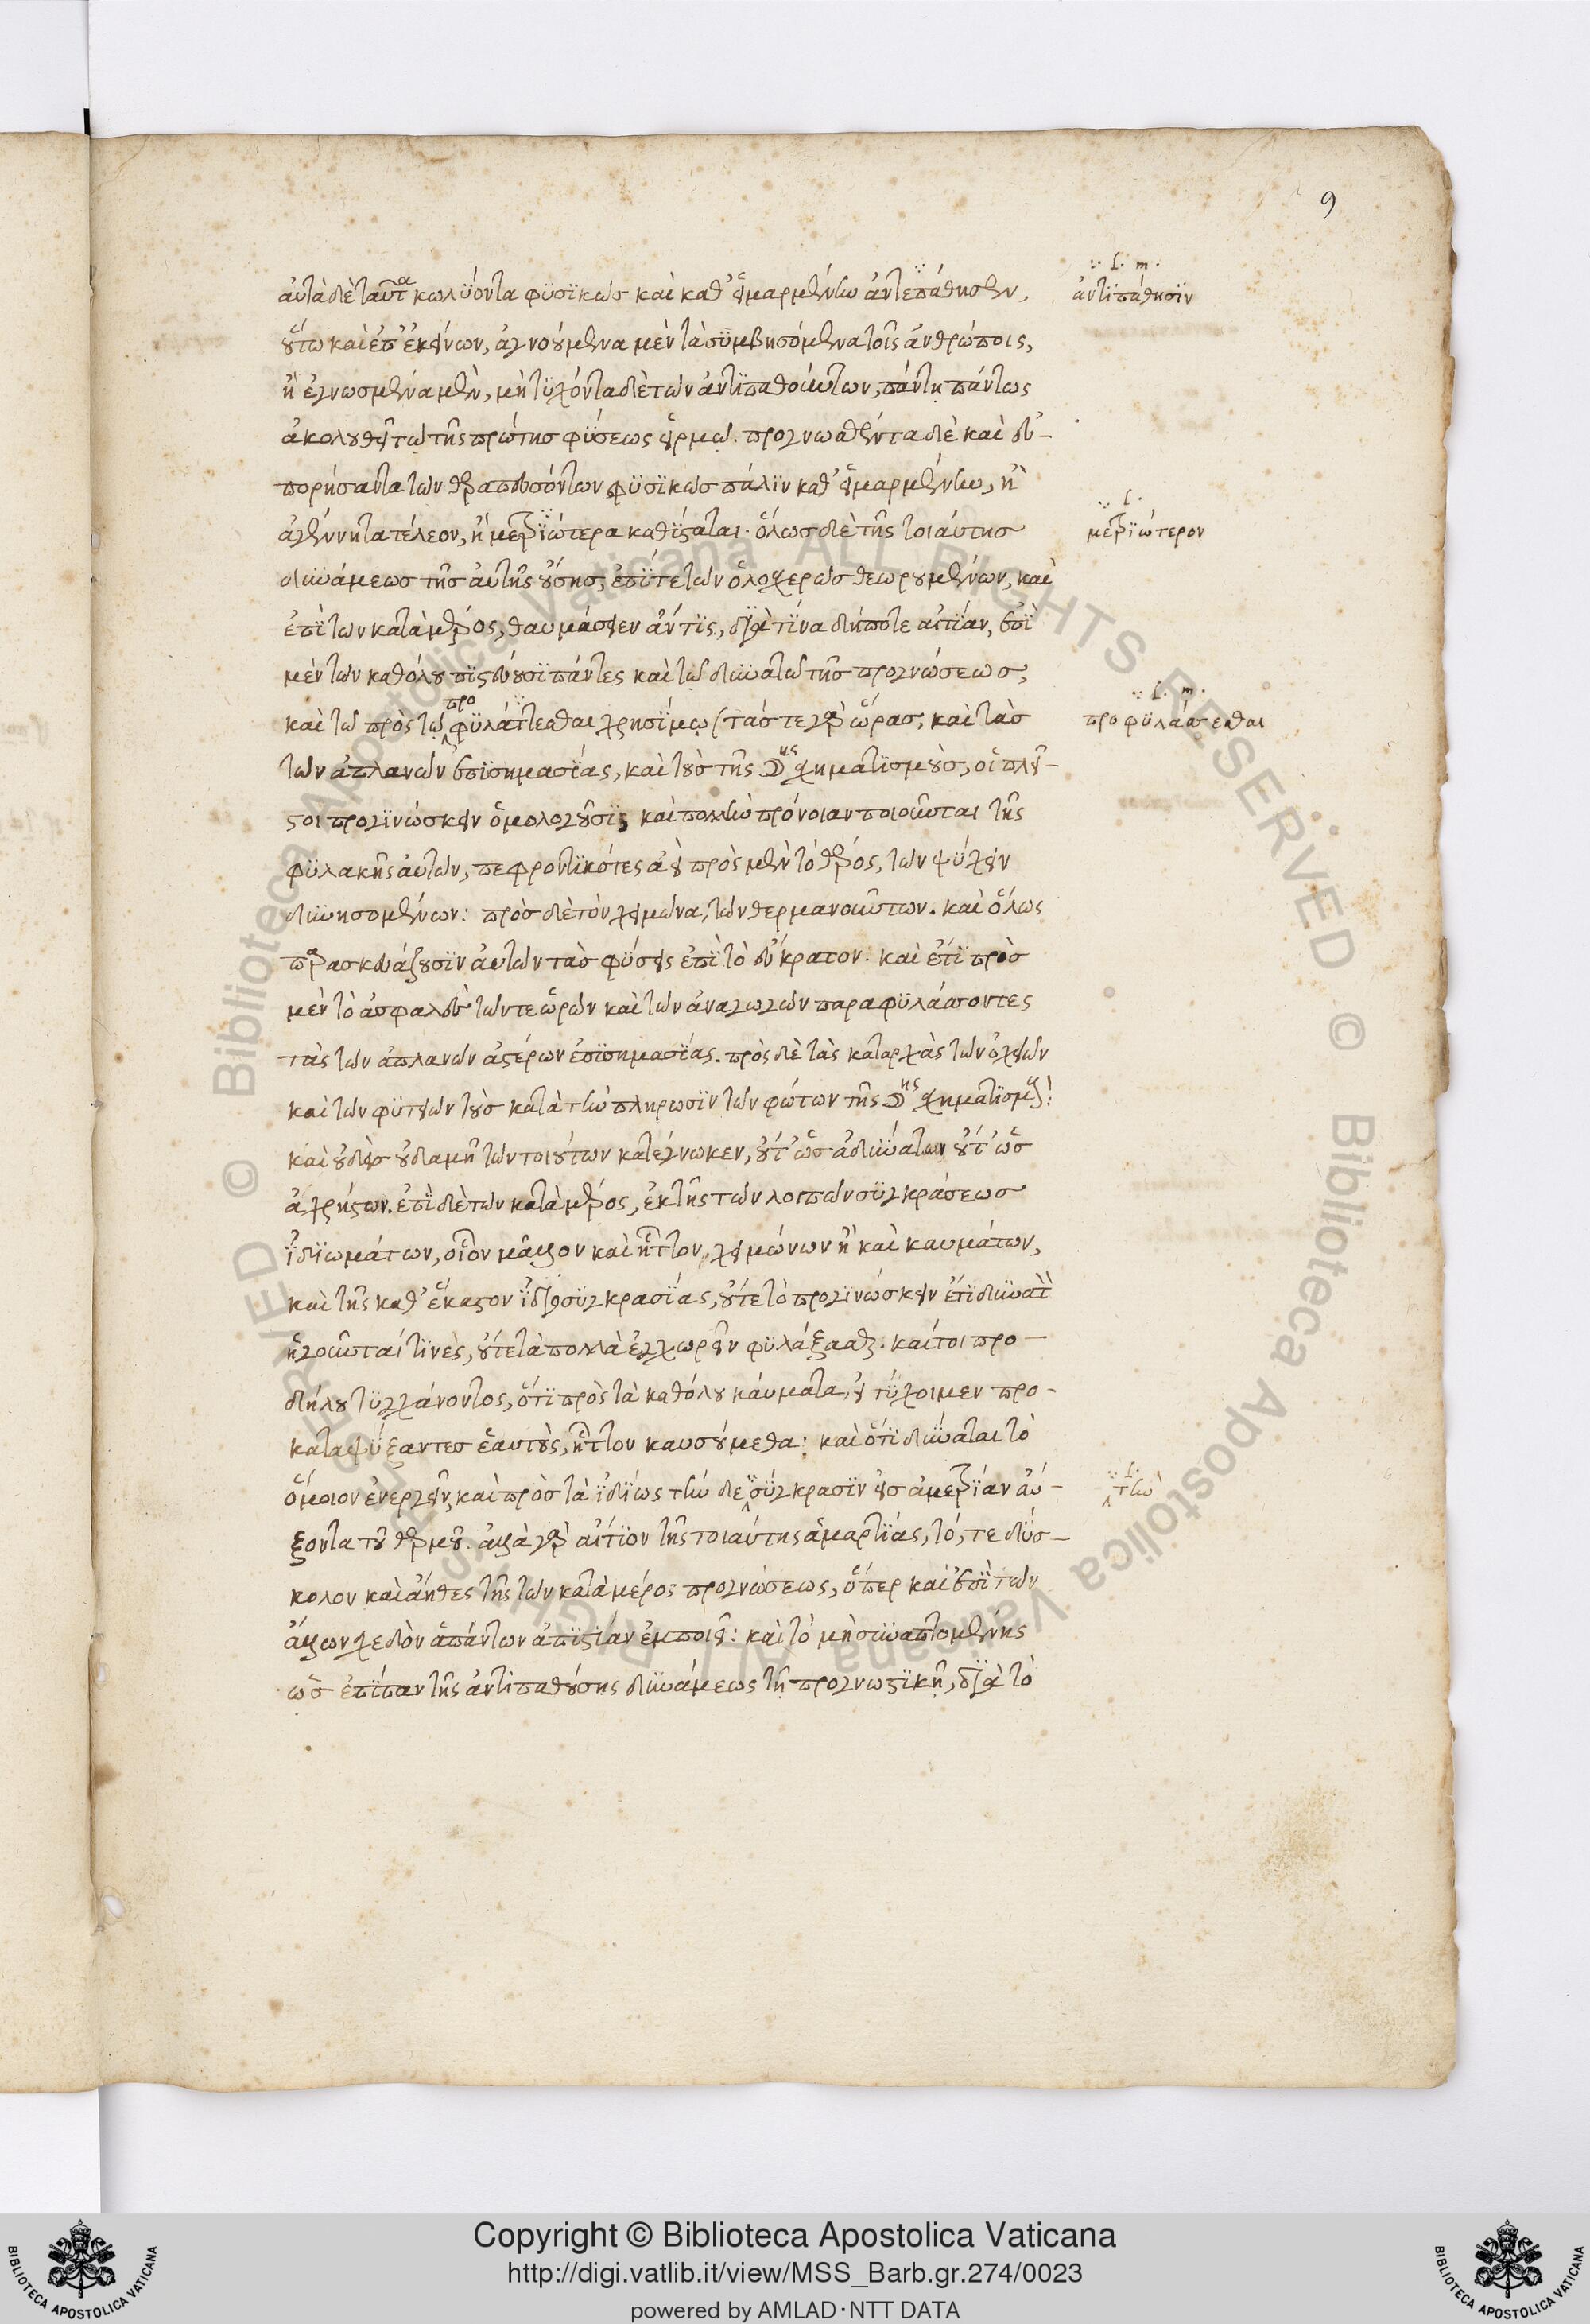 9
αὐτὰ δὲ ταῦτα κωλύοντα φϋσϊκῶσ καὶ καθ' εἱμαρμένην ἀντεπάθησεν,
∵ l. m.
ἀντϊπάθησϊν
οὕτω καὶ ἐπ' ἐκείνων, ἀγνοούμενα μὲν τὰ συμβησόμενα τοῖς ἀνθρώποις,
ἢ ἐγνωσμένα μὲν, μὴ τϋχόντα δὲ τῶν ἀντϊπαθούντων, πάντη πάντως
ἀκολουθεῖ τῷ τῆς πρώτησ φύσεως εἱρμῷ. προγνωσθέντα δὲ καὶ εὐ-
πορήσαντα τῶν θεραπευσόντων φϋσϊκῶσ πάλϊν καθ' εἱμαρμένην, ἢ
ἀγέννητα τέλεον, ἢ μετρϊώτερα καθίσταται. ὅλωσ δὲ τῆς τοιαύτησ
∵ l.
μετρϊώτερον
δυνάμεωσ τῆσ αὐτῆς οὔσησ, ἐπί τε τῶν ὁλοσχερῶσ θεωρουμένων, καὶ
ἐπὶ τῶν κατὰ μέρος, θαυμάσειεν ἄν τϊς, δϊὰ τίνα δήποτε αἰτίαν, ἐπὶ
μὲν τῶν καθόλου πϊστεύουσϊ πάντες καὶ τῷ δυνατῷ τῆσ προγνώσεωσ,
καὶ τῷ πρὸς τῷ προφϋλάττεσθαι χρησίμῳ (τάσ τε γὰρ ὥρασ, καὶ τὰσ
∵ l. m.
προφϋλάσσεσθαι
τῶν ἀπλανῶν ἐπϊσημασίας, καὶ τοὺσ τῆς ☽ης σχηματϊσμοὺσ, οἱ πλεῖ-
στοι προγϊνώσκειν ὁμολογοῦσϊ, καὶ πολλὴν πρόνοιαν ποιοῦνται τῆς
φϋλακῆς αὐτῶν, πεφροντϊκότες ἀεὶ πρὸς μὲν τὸ θέρος, τῶν ψύχειν
δυνησομένων: πρὸσ δὲ τὸν χειμῶνα, τῶν θερμανούντων. καὶ ὅλως
παρασκευάζουσϊν αὐτῶν τὰσ φύσεις ἐπὶ τὸ εὔκρατον: καὶ ἔτϊ πρὸσ
μὲν τὸ ἀσφαλὲσ τῶν τε ὡρῶν καὶ τῶν ἀναγωγῶν παραφϋλάσσοντες
τὰς τῶν ἀπλανῶν ἀστέρων ἐπϊσημασίας. πρὸς δὲ τὰς καταρχὰς τῶν ὀχειῶν
καὶ τῶν φϋτειῶν τοὺσ κατὰ τὴν πλήρωσϊν τῶν φώτων τῆς ☽ης σχηματϊσμούς:
καὶ οὐδεὶσ οὐδαμῆ τῶν τοιούτων κατέγνωκεν, οὔτ' ὡσ ἀδυνάτων οὔτ' ὡσ
ἀχρήστων. ἐπὶ δὲ τῶν κατὰ μέρος, ἐκ τῆς τῶν λοιπῶν συγκράσεωσ
ἰδϊωμάτων, οἷον μᾶλλον καὶ ἧττον, χειμώνων ἢ καὶ καυμάτων,
καὶ τῆς καθ' ἕκαστον ἰδϊοσυγκρασίας, οὔτε τὸ προγϊνώσκειν ἔτϊ δυνατὸν
ἡγοῦνταί τϊνὲς, οὔτε τὰ πολλὰ ἐγχωρεῖν φϋλάξασθαι. καίτοι προ-
δήλου τϋγχάνοντος, ὅτϊ πρὸς τὰ καθόλου καύματα, εἰ τύχοιμεν προ-
καταψύξαντεσ ἑαυτοὺς, ἧττον καυσούμεθα: καὶ ὅτϊ δύναται τὸ
ὅμοιον ἐνεργεῖν, καὶ πρὸσ τὰ ἰδίως τὴν δε ‸ σύγκρασϊν εἰσ ἀμετρίαν αὔ-
∵ l.
‸ τὴν
ξοντα τοῦ θερμοῦ. ἀλλὰ γὰρ αἴτϊον τῆς τοιαύτης ἁμαρτίας, τό, τε δύσ-
κολον καὶ ἄηθες τῆς τῶν κατὰ μέρος προγνώσεως, ὅπερ καὶ ἐπὶ τῶν
ἄλλων σχεδὸν ἁπάντων ἀπϊστίαν ἐμποιεῖ: καὶ τὸ μὴ συναπτομένης
ὡσ ἐπίπαν τῆς ἀντϊπαθούσης δυνάμεως τῇ προγνωστϊκῇ, δϊὰ τὸ
Copyright © Biblioteca Apostolica Vaticana
http://digi.vatlib.it/view/MSS_Barb.gr.274/0023
powered by AMLAD·NTT DATA
© Biblioteca Apostolica Vaticana ALL RIGHTS RESERVED
© Biblioteca Apostolica Vaticana ALL RIGHTS RESERVED
BIBLIOTECA APOSTOLICA VATICANA
BIBLIOTECA APOSTOLICA VATICANA